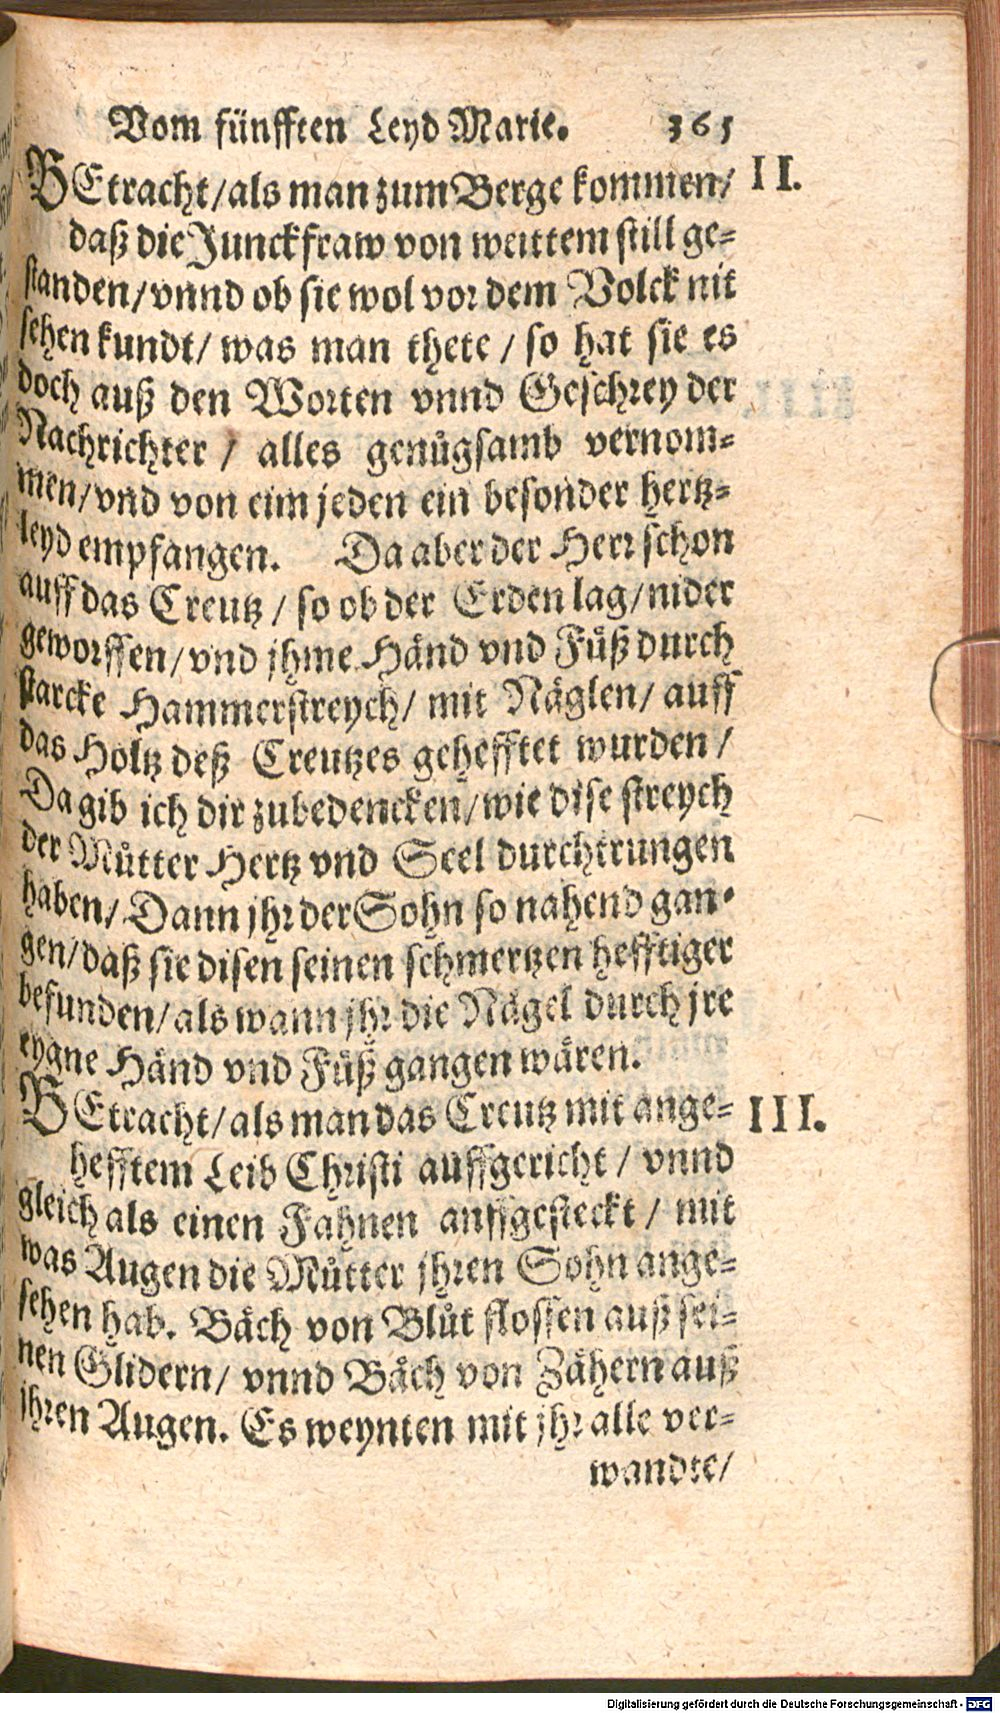 Vom fünfften Leyd Marie. 365
BEtracht/als man zum Berge kommen/ II.
daß die Junckfraw von weittem still ge-
standen/vnnd ob sie wol vor dem Volck nit
sehen kundt/ was man thete / so hat sie es
doch auß den Worten vnnd Geschrey der
Nachrichter / alles genůgsamb vernom-
men/vnd von eim jeden ein besonder hertz-
leyd empfangen. Da aber der Herr schon
auff das Creutz / so ob der Erden lag/nider
geworffen/vnd jhme Händ vnd Füß durch
starcke Hammerstreych/ mit Näglen/ auff
das Holtz deß Creutzes gehefftet wurden /
Da gib ich dir zubedencken/wie dise streych
der Můtter Hertz vnd Seel durchtrungen
haben/ Dann jhr der Sohn so nahend gan-
gen/daß sie disen seinen schmertzen hefftiger
befunden/als wann jhr die Nägel durch jre
eygne Händ vnd Füß gangen wären.
BEtracht/als man das Creutz mit ange- III.
hefftem Leib Christi auffgericht / vnnd
gleich als einen Fahnen auffgesteckt / mit
was Augen die Můtter jhren Sohn ange-
sehen hab. Bäch von Blůt flossen auß sei-
nen Glidern/ vnnd Bäch von Zähern auß
jhren Augen. Es weynten mit jhr alle ver-
wandte/
Digitalisierung gefördert durch die Deutsche Forschungsgemeinschaft - DFG